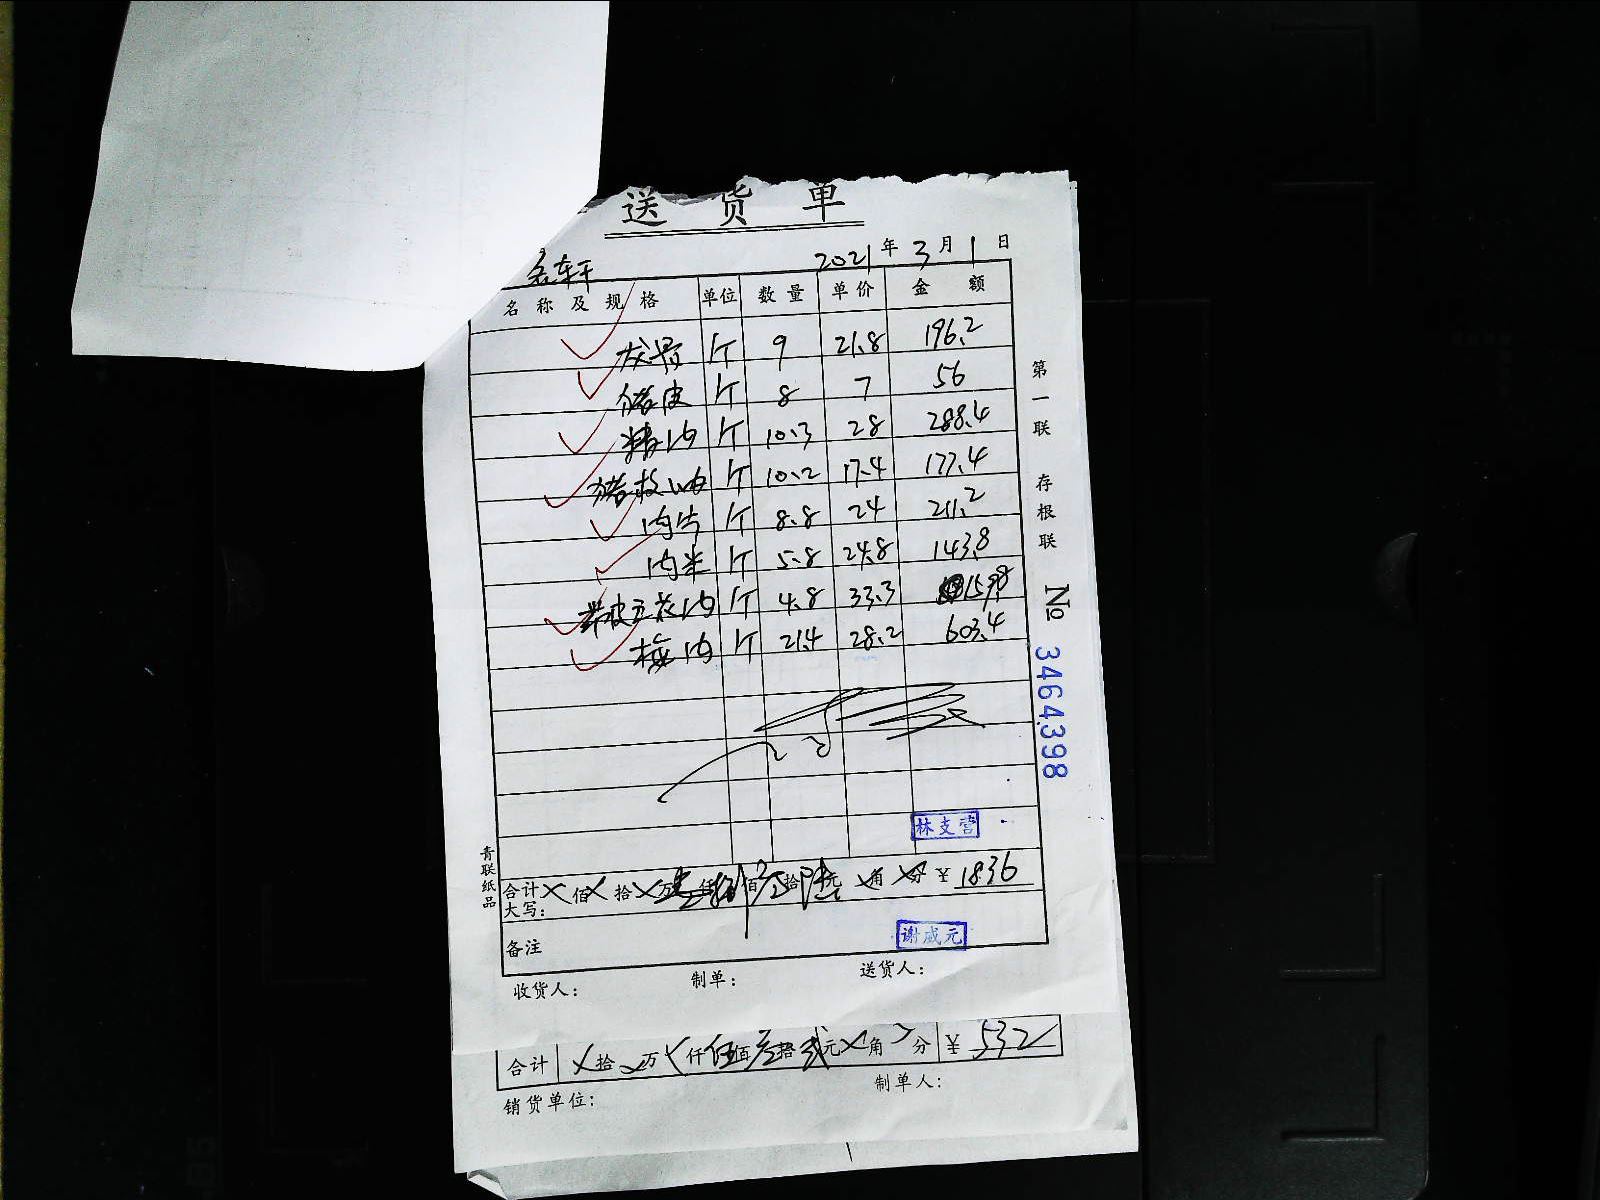 送 货 单
2021 年 3 月 1 日
名 称 及 规 格 单位 数 量 单 价 金 额
龙骨 斤 9 21.8 196.2
猪皮 斤 8 7 56
精肉 斤 10.3 28 288.4
猪板油 斤 10.2 17.4 177.4
肉片 斤 8.8 24 211.2
肉米 斤 5.8 24.8 143.8
带皮五花肉 斤 4.8 33.3 159.8
梅肉 斤 21.4 28.2 603.4
林支营
合计大写: × 佰 × 拾 × 万 壹 仟 捌 佰 叁 拾 陆 元 × 角 × 分 ¥ 1836
备注
谢成元
收货人: 制单: 送货人:
第一联 存根联
№ 3464398
青联纸品
合计 × 拾 × 万 × 仟 伍 佰 叁 拾 贰 元 × 角 × 分 ¥ 532
制单人:
销货单位: